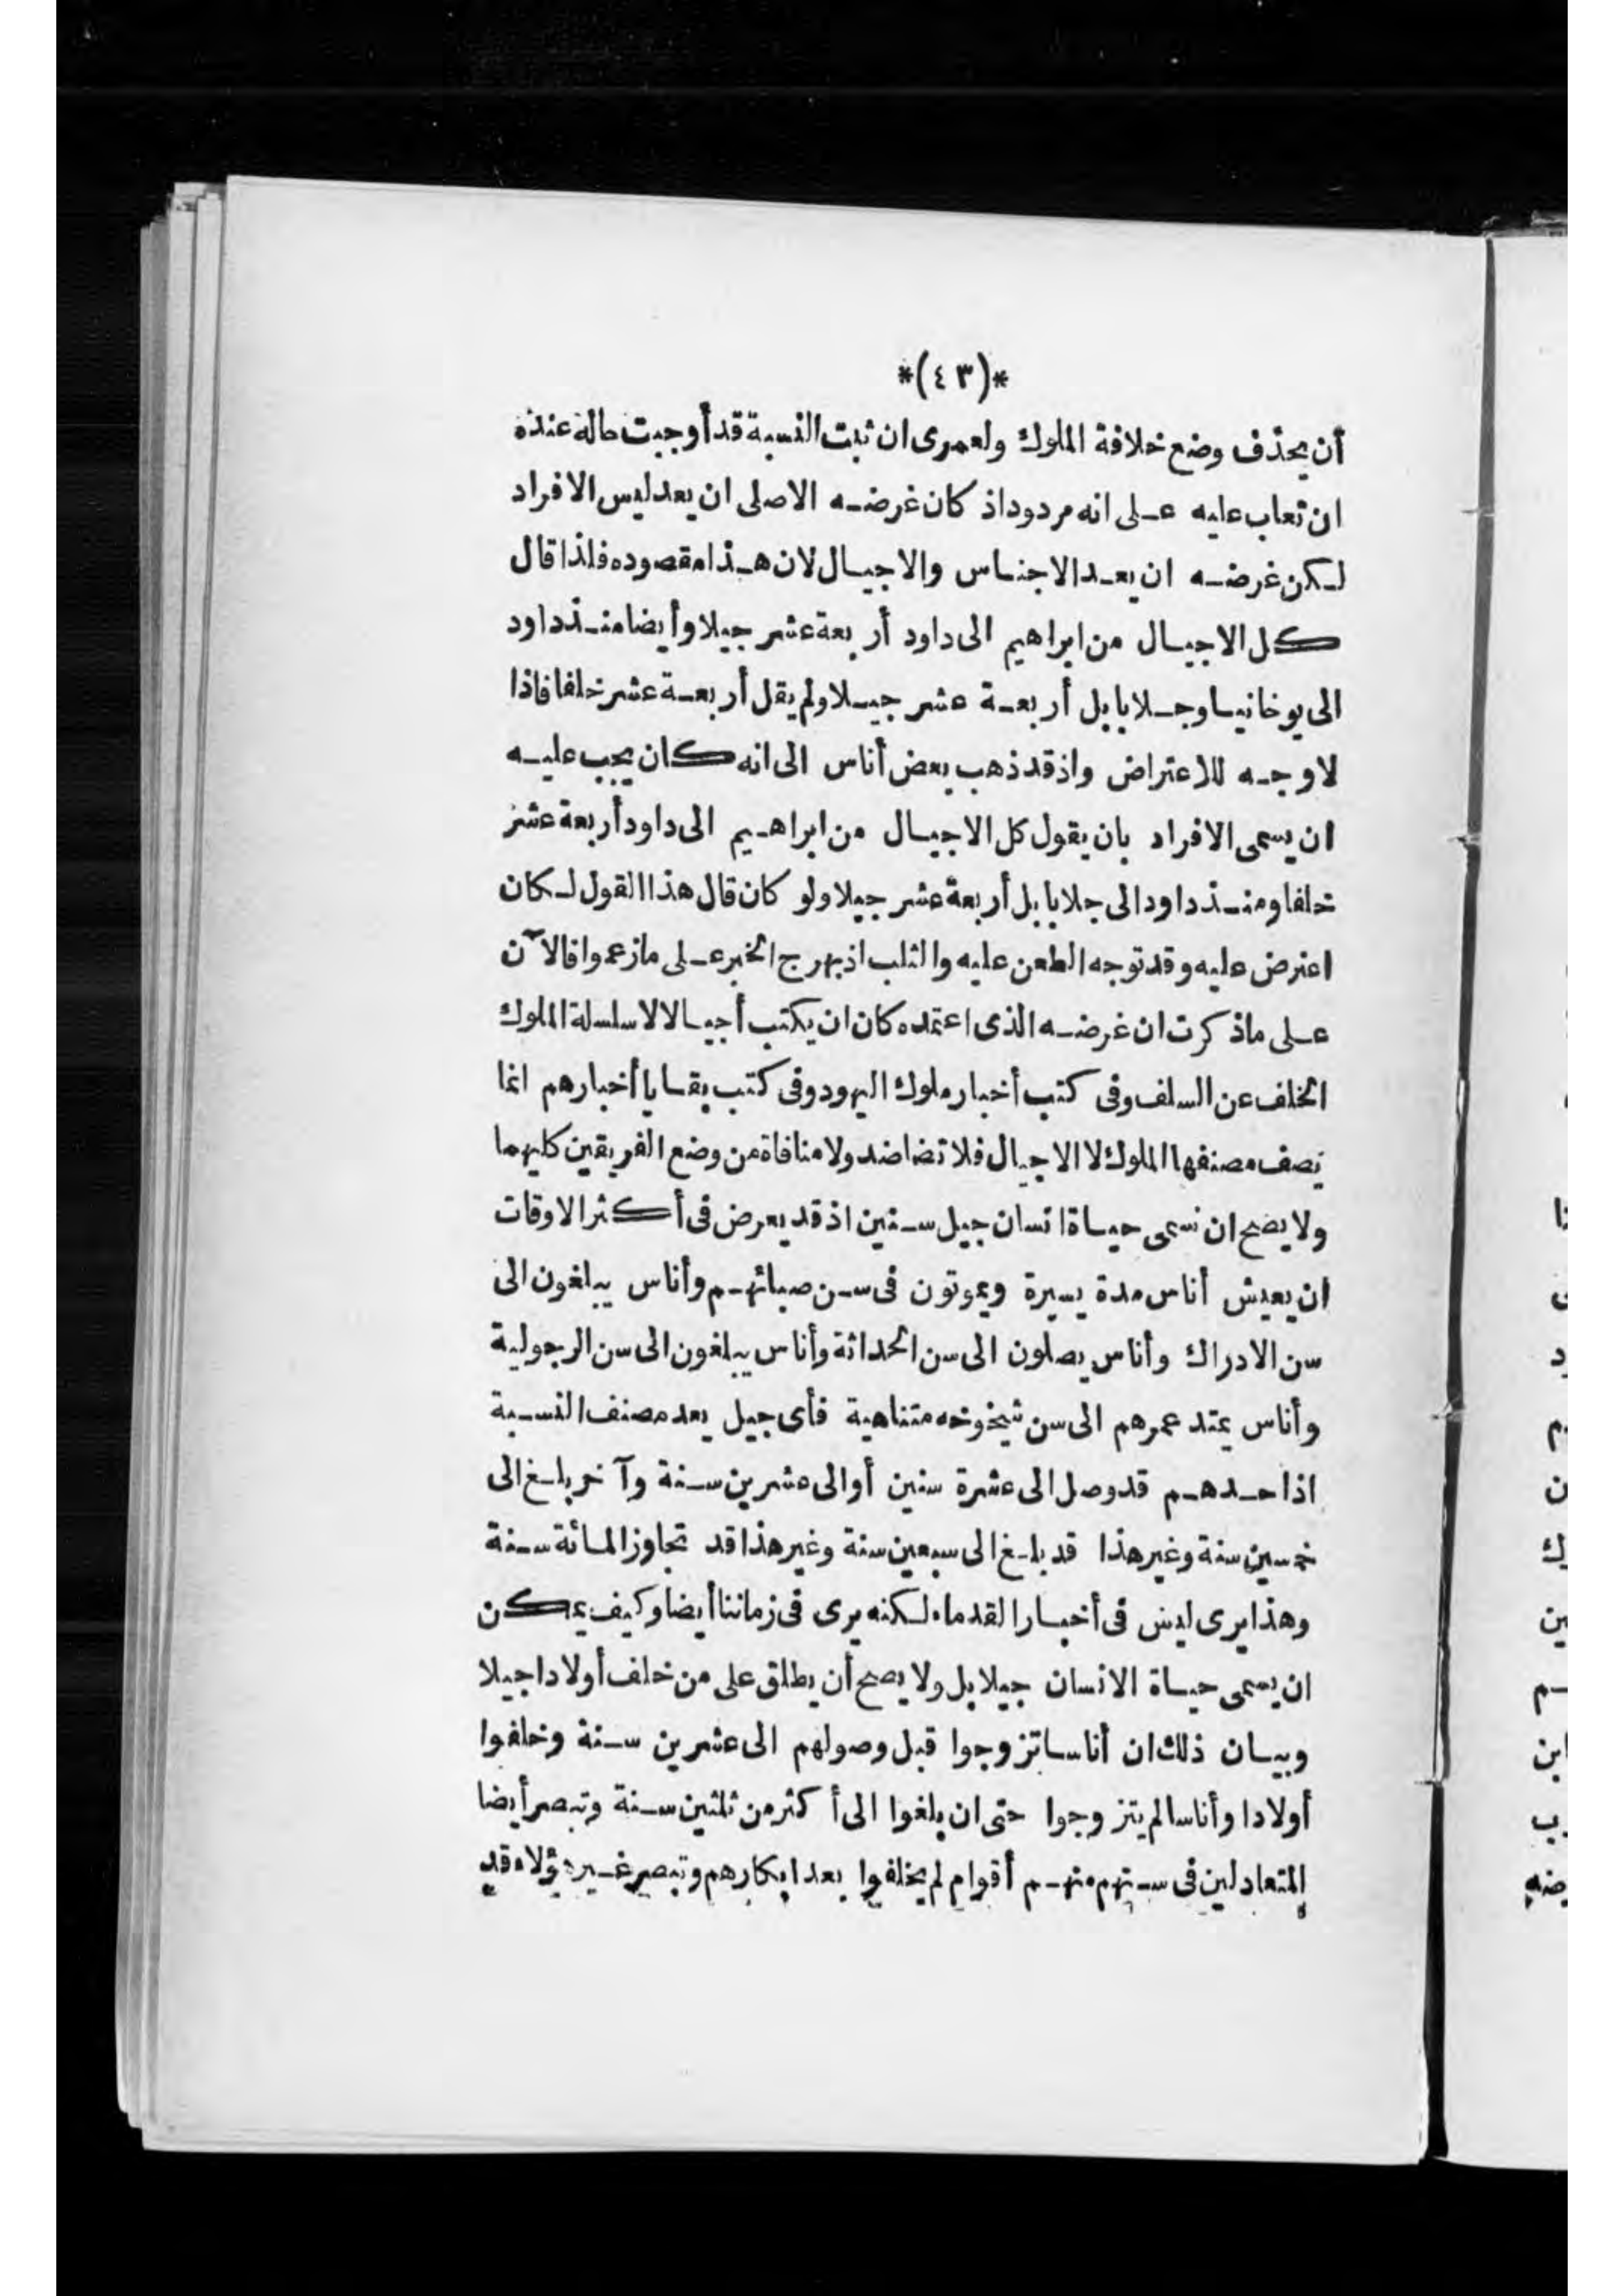 *(٤٣)*
أن يحذف وضع خلافة الملوك ولعمرى ان ثبت النسبة قد أوجبت حاله عنده
ان تعاب عليه على انه مردود اذ كان غرضه الاصلى ان يعد ليس الافراد
لكن غرضه ان يعد الاجناس والاجيال لان هذا مقصوده فلذا قال
كل الاجيال من ابراهيم الى داود أربعة عشر جيلا وأيضا منذ داود
الى يوخانيا وجلا بابل أربعة عشر جيلا ولم يقل أربعة عشر خلفا فاذا
لا وجه للاعتراض واذ قد ذهب بعض أناس الى انه كان يجب عليه
ان يسمى الافراد بان يقول كل الاجيال من ابراهيم الى داود أربعة عشر
خلفا ومنذ داود الى جلا بابل أربعة عشر جيلا ولو كان قال هذا القول لكان
اعترض عليه وقد توجه الطعن عليه والثلب اذ بهرج الخبر على ما زعموا فالآن
على ما ذكرت ان غرضه الذى اعتمده كان ان يكتب أجيالا لا سلسلة الملوك
الخلف عن السلف وفى كتب أخبار ملوك اليهود وفى كتب بقايا أخبارهم انما
يصف مصنفها الملوك لا الاجيال فلا تضاضد ولا منافاة من وضع الفريقين كليهما
ولا يصح ان نسمى حياة انسان جيل سنين اذ قد يعرض فى أكثر الاوقات
ان يعيش أناس مدة يسيرة ويموتون فى سن صبائهم وأناس يبلغون الى
سن الادراك وأناس يصلون الى سن الحداثة وأناس يبلغون الى سن الرجولية
وأناس يمتد عمرهم الى سن شيخوخه متناهية فأى جيل يعد مصنف النسبة
اذا حدهم قد وصل الى عشرة سنين أو الى عشرين سنة وآخر بلغ الى
خمسين سنة وغير هذا قد بلغ الى سبعين سنة وغير هذا قد تجاوز المائة سنة
وهذا يرى ليس فى أخبار القدماء لكنه يرى فى زماننا أيضا وكيف يمكن
ان يسمى حياة الانسان جيلا بل ولا يصح أن يطلق على من خلف أولادا جيلا
وبيان ذلك ان أناسا تزوجوا قبل وصولهم الى عشرين سنة وخلفوا
أولادا وأناسا لم يتزوجوا حتى ان بلغوا الى أكثر من ثلثين سنة وتبصر أيضا
المتعادلين فى سنهم منهم أقوام لم يخلفوا بعد ابكارهم وتبصر غير هؤلاء قد